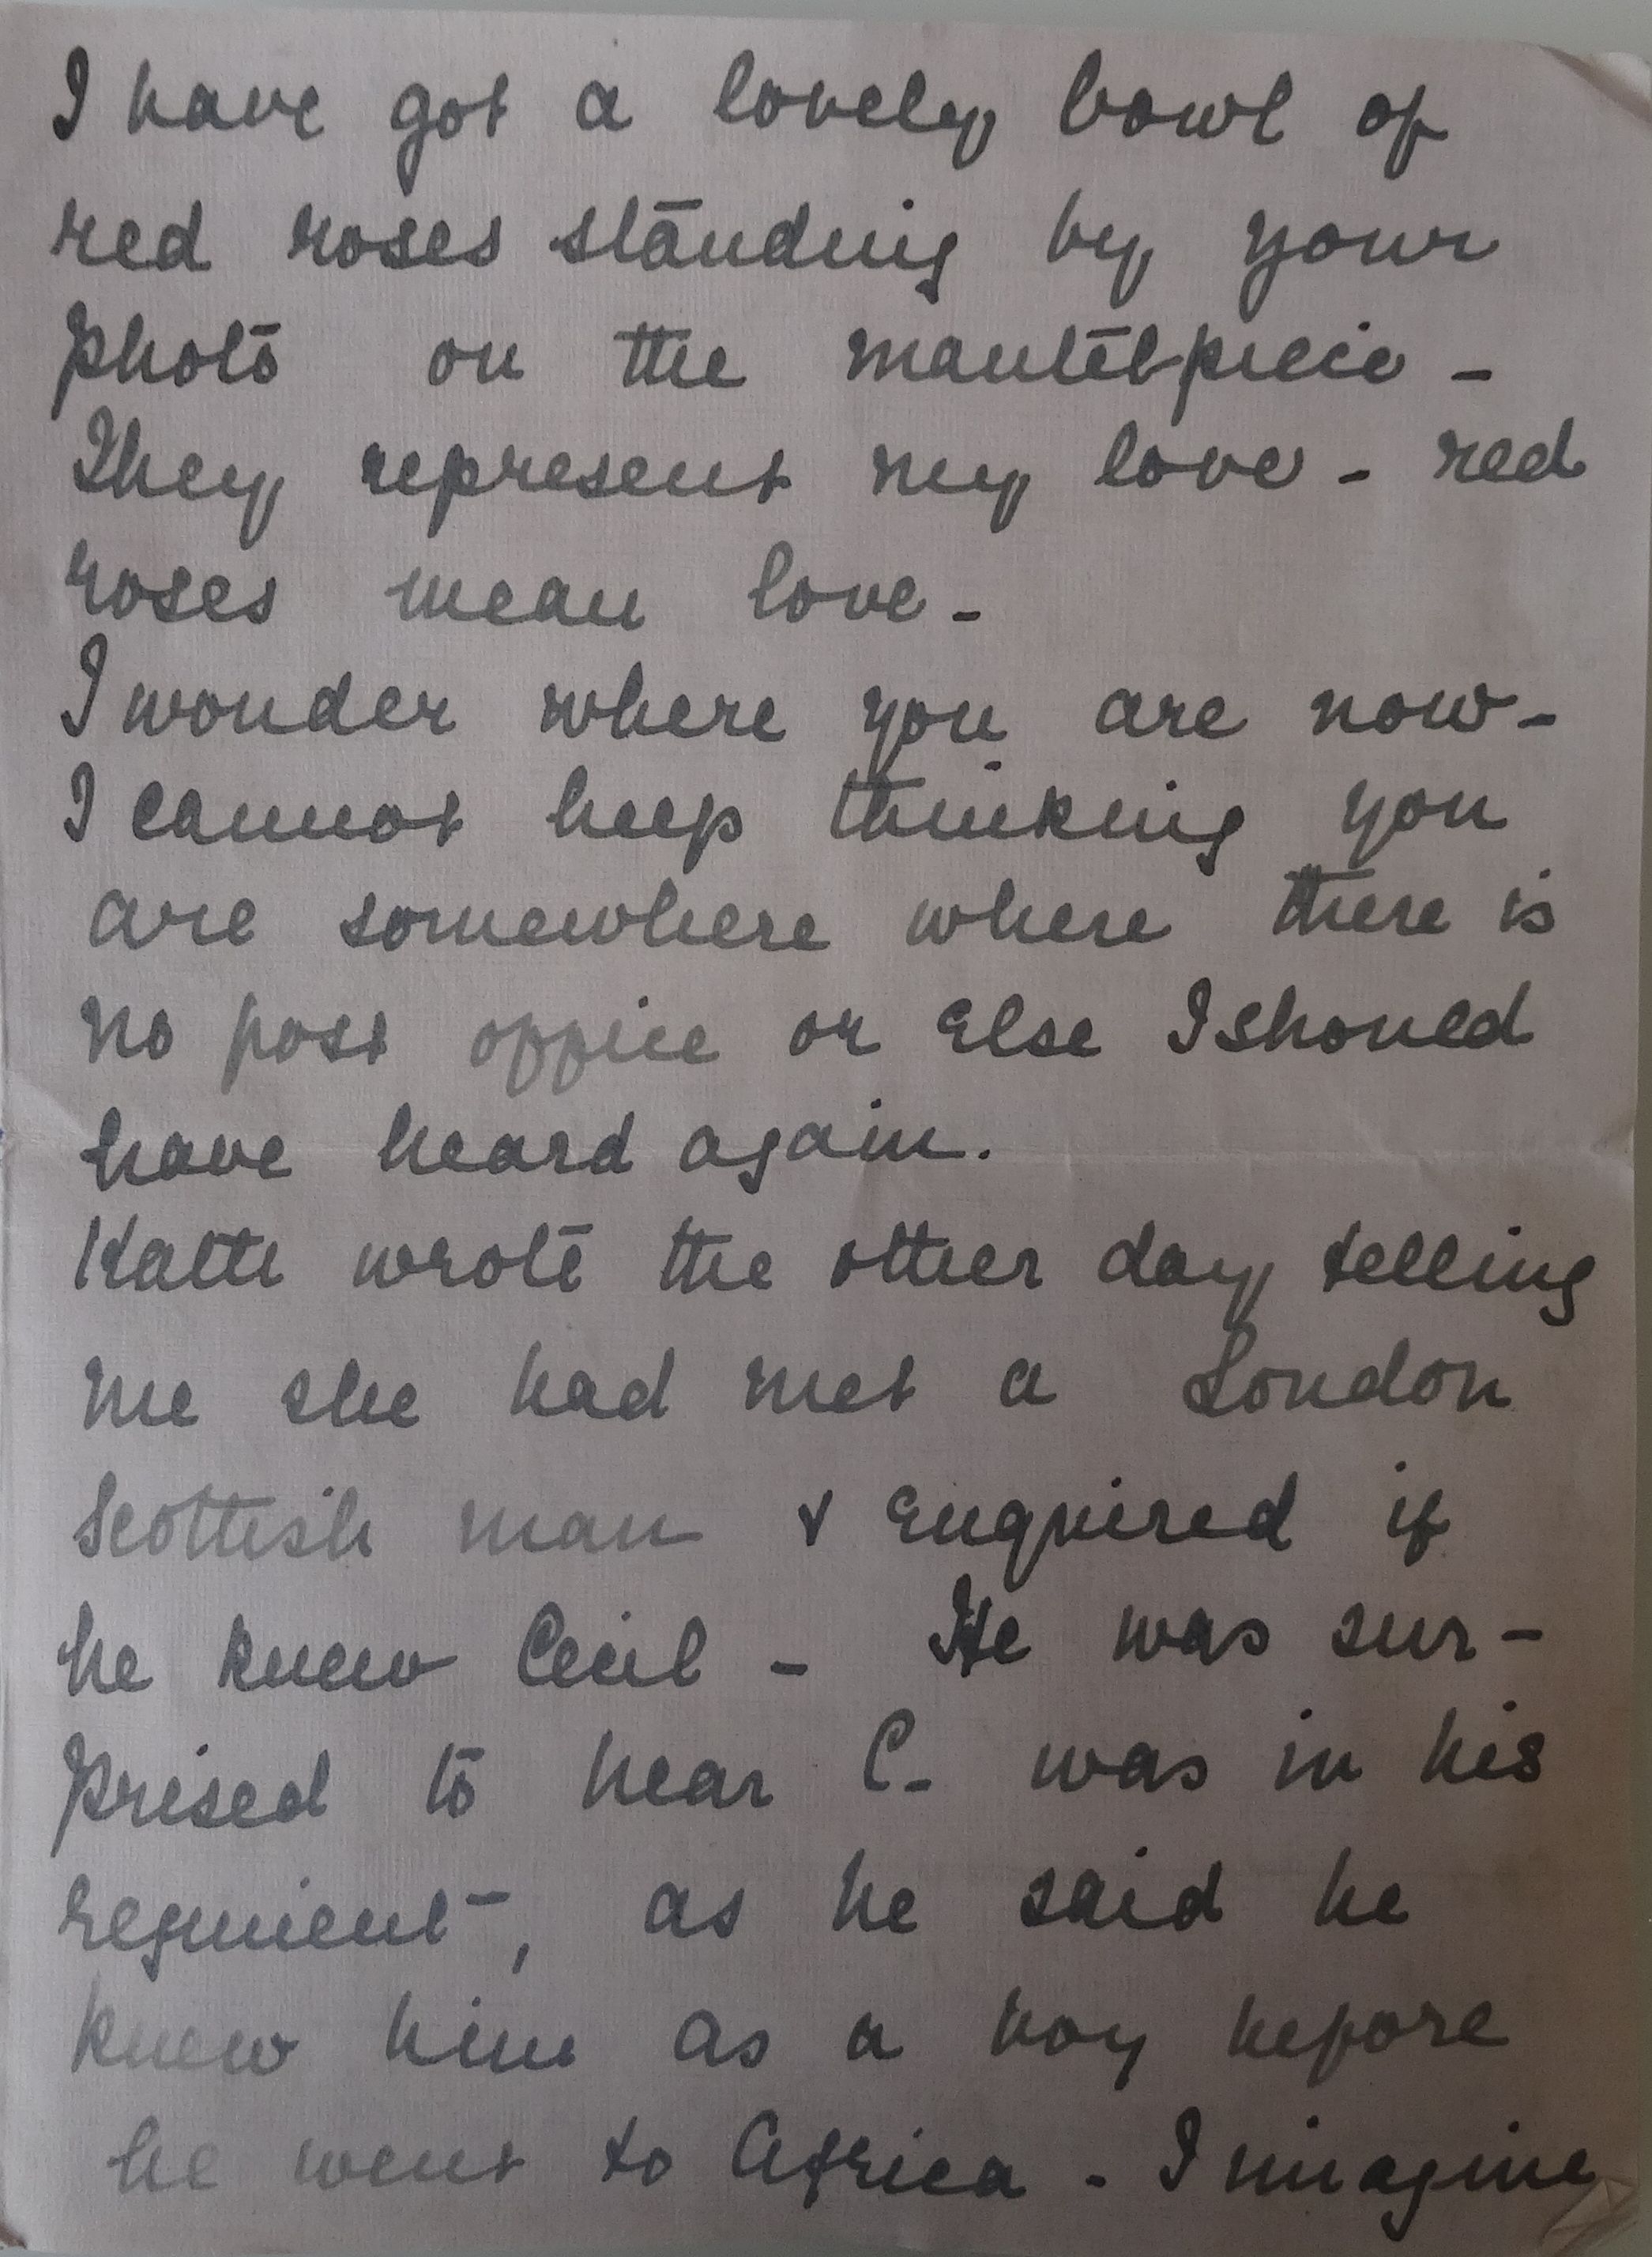 I have got a lovely bowl of
red roses standing by your
photo on the mantelpiece -
They represent my love - red
roses mean love -
I wonder where you are now -
I cannot keep thinking you
are somewhere where there is
no post office or else I should
have heard again.
wrote the other day telling
me she had met a London
Scottish man & enquired if
he knew Cecil - He was sur-
prised to hear C- was in his
regiment, as he said he
knew him as a boy before
he went to Africa - I imagine